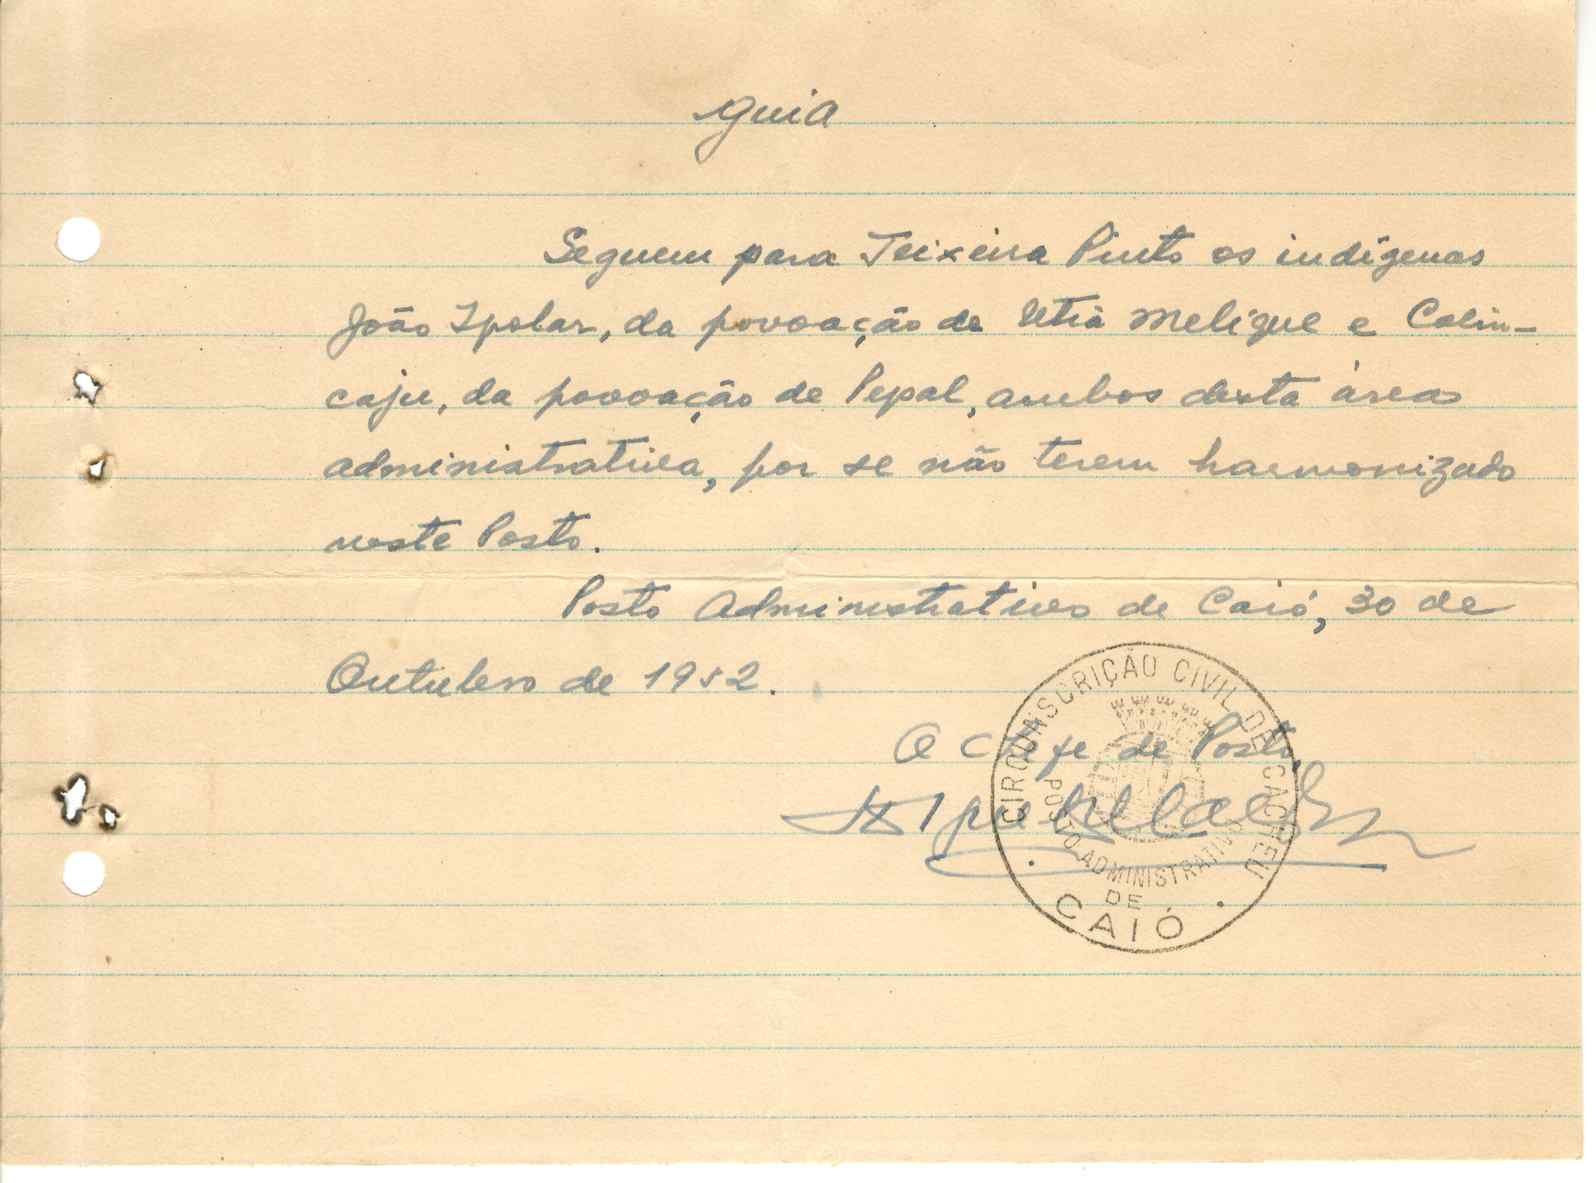 Guia
Seguem para Teixeira Pinto os indígenas
João Ipolar, da povoação de Utiá Melique e Colin-
caju, da povoação de Pepal, ambos desta área
administrativa, por se não terem harmonizado
neste Posto.
Posto Administrativo de Caió, 30 de
Outubro de 1952.
O Chefe de Posto,
CIRCUNSCRIÇÃO CIVIL DE CACHEU
POSTO ADMINISTRATIVO
DE
CAIÓ